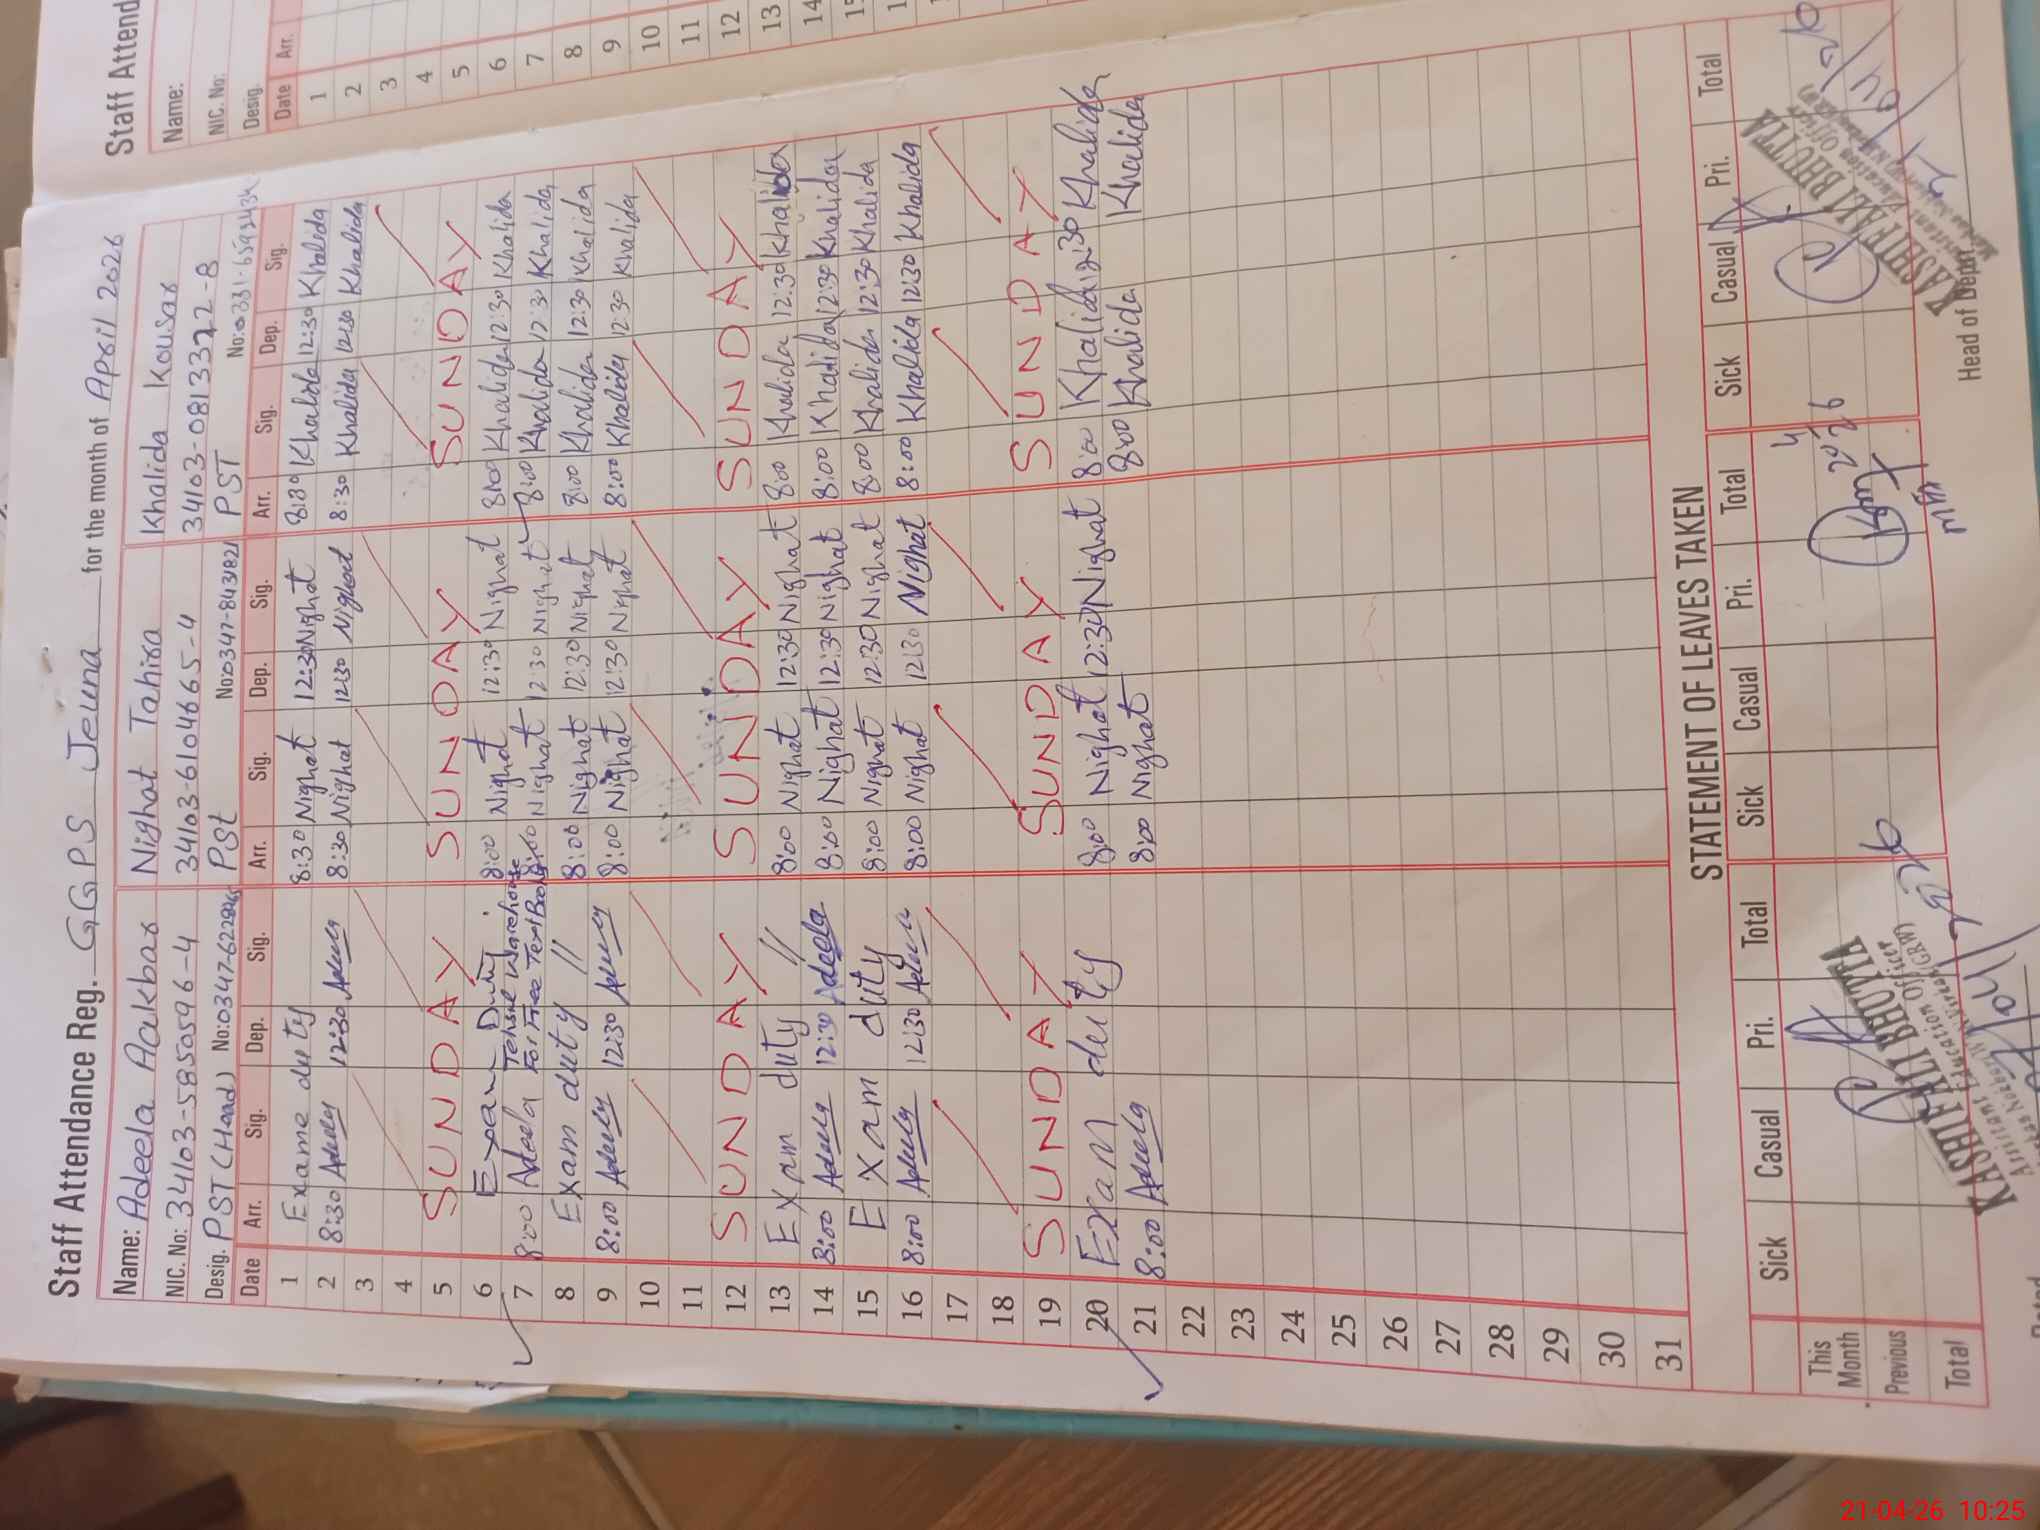 Staff Attendance Reg. GGPS Jeuna for the month of April 2026
Name: Adeela Aakbar Nighat Tahira Khalida Kousar
NIC. No: 34103-5850596-4 34103-6104665-4 34103-0813372-8
Desig. PST (Head) PSt No:0347-8431821 PST
Date Arr. Sig. Dep. Sig. Arr. Sig. Dep. Sig. Arr. Sig. Dep. Sig.
1 Exame duty 8:30 Nighat 12:30 Nighat 8:30 Khalida 12:30 Khalida
2 8:30 12:30 8:30 Nighat 12:30 Nighat 8:30 Khalida 12:30 Khalida
3
4
5 SUNDAY SUNDAY SUNDAY
6 Exam Duty 8:00 Nighat 12:30 Nighat 8:00 Khalida 12:30 Khalida
7 8:00 Adeela Tehsil Warehouse For Free Text Books 8:00 Nighat 12:30 Nighat 8:00 Khalida 12:30 Khalida
8 Exam duty // 8:00 Nighat 12:30 Nighat 8:00 Khalida 12:30 Khalida
9 8:00 12:30 8:00 Nighat 12:30 Nighat 8:00 Khalida 12:30 Khalida
10
11
12 SUNDAY SUNDAY SUNDAY
13 Exam duty // 8:00 Nighat 12:30 Nighat 8:00 Khalida 12:30 Khalida
14 8:00 12:30 Adeela 8:00 Nighat 12:30 Nighat 8:00 Khalida 12:30 Khalida
15 Exam duty 8:00 Nighat 12:30 Nighat 8:00 Khalida 12:30 Khalida
16 8:00 12:30 8:00 Nighat 12:30 Nighat 8:00 Khalida 12:30 Khalida
17
18
19 SUNDAY SUNDAY SUNDAY
20 Exam duty 8:00 Nighat 12:30 Nighat 8:00 Khalida 12:30 Khalida
21 8:00 8:00 Nighat 8:00 Khalida Khalida
22
23
24
25
26
27
28
29
30
31
STATEMENT OF LEAVES TAKEN
Sick Casual Pri. Total Sick Casual Pri. Total Sick Casual Pri. Total
This Month
Previous
Total
KASHIF ALI BHUTTA
Assistant Education Officer
KASHIF ALI BHUTTA
Assistant Education Officer
Head of Deptt.
Staff Attend
Name:
NIC. No:
Desig.
Date Arr.
1
2
3
4
5
6
7
8
9
10
11
12
13
14
21-04-26 10:25